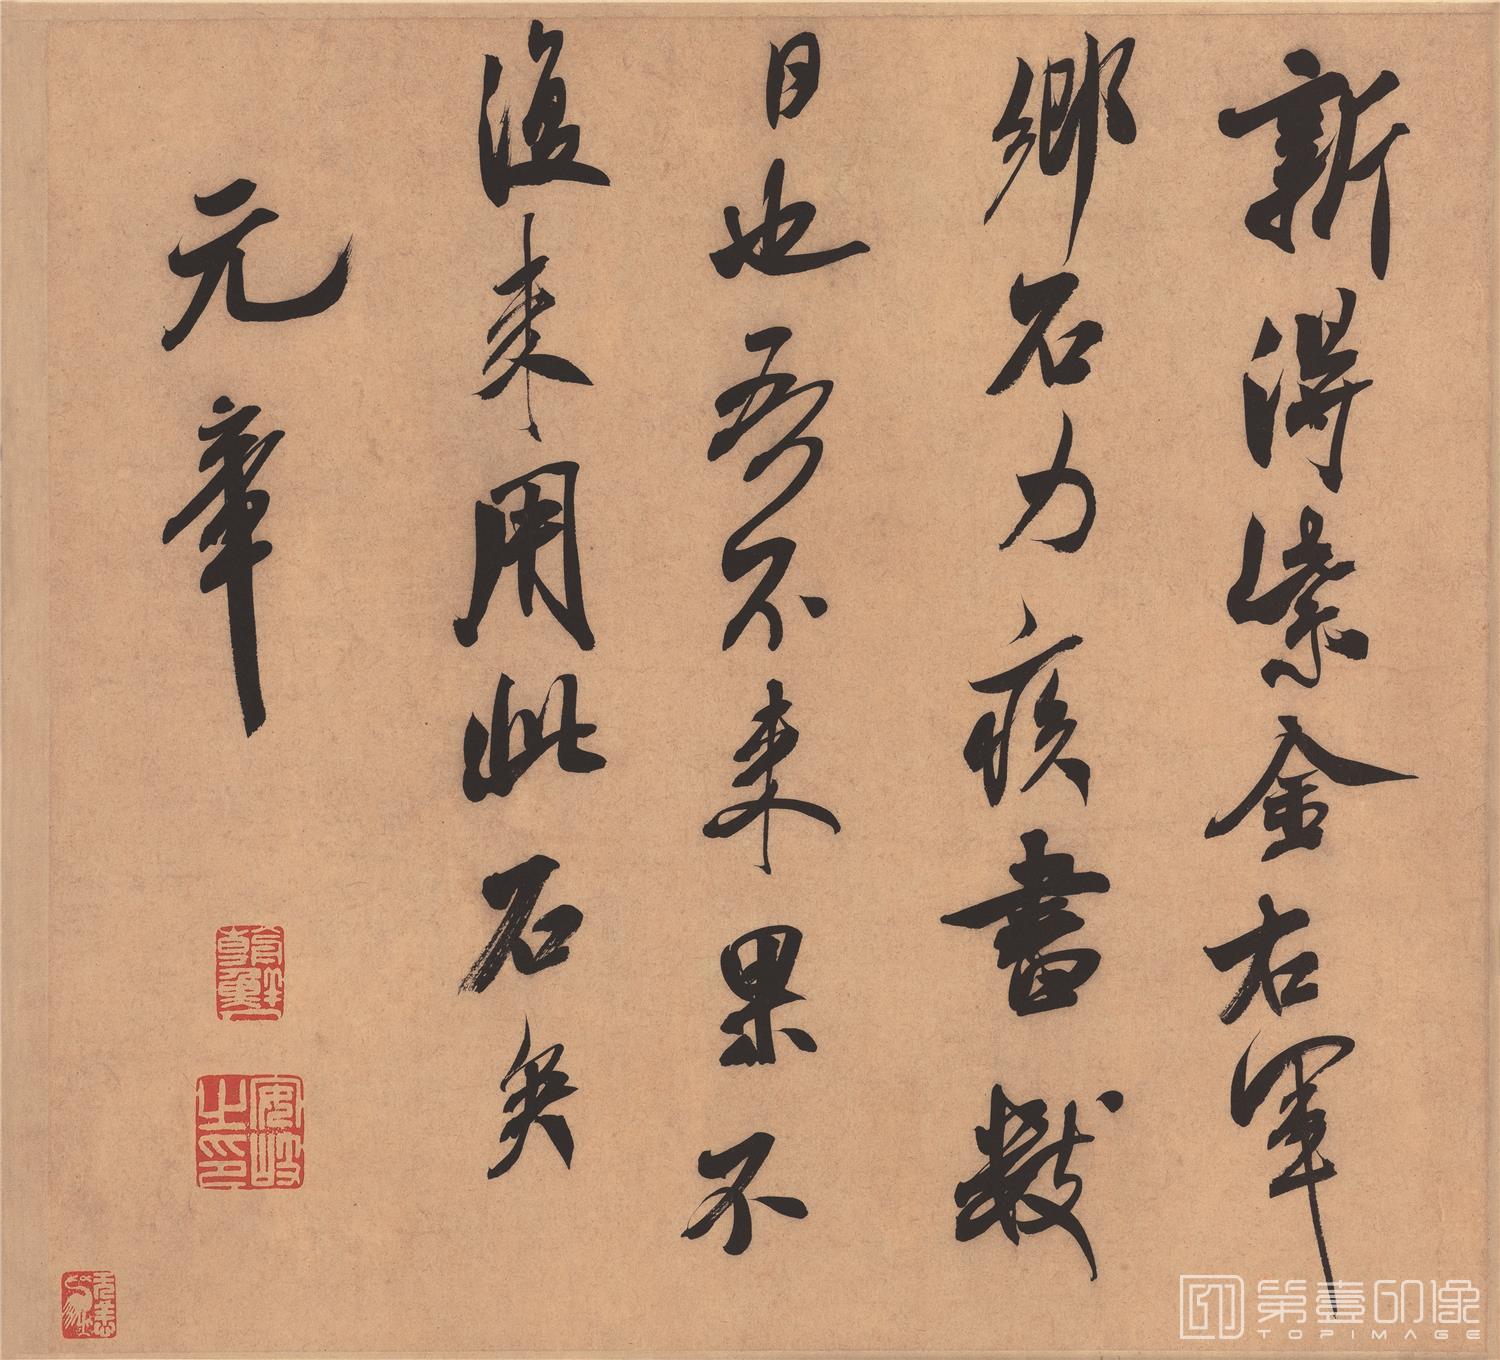 新得紫金右軍
鄉石力疾書數
日也吾不來果不
復來用此石矣
元章
第壹印像
TOPIMAGE